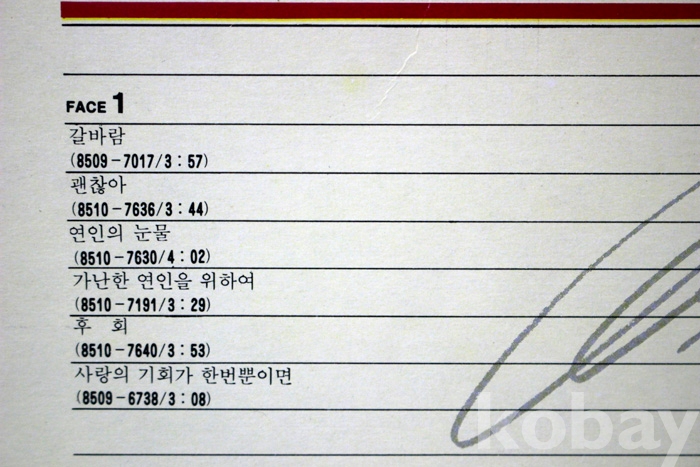 FACE 1
갈바람
(8509-7017/3:57)
괜찮아
(8510-7636/3:44)
연인의 눈물
(8510-7630/4:02)
가난한 연인을 위하여
(8510-7191/3:29)
후 회
(8510-7640/3:53)
사랑의 기회가 한번뿐이면
(8509-6738/3:08)
kobay